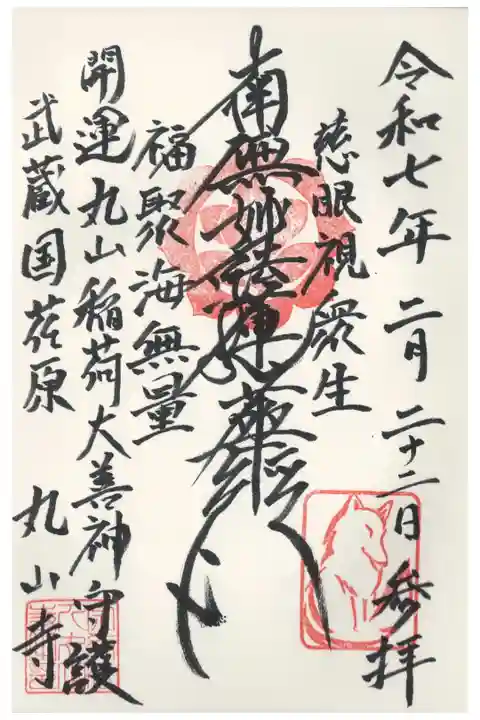 令和七年 二月 二十二日 参拝
慈眼視衆生
南無妙法蓮華経
福聚海無量
開運丸山稲荷大善神守護
武蔵国荏原 丸山寺